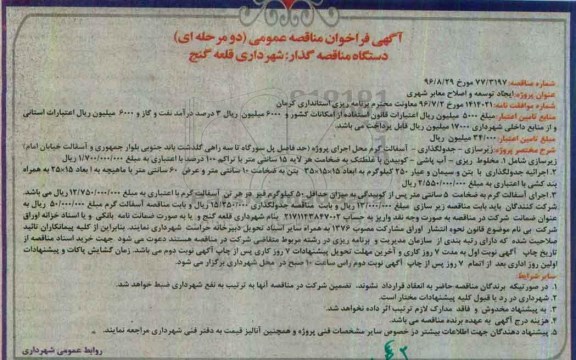 آگهی فراخوان مناقصه عمومی (دو مرحله ای)
دستگاه مناقصه گذار: شهرداری قلعه گنج
شماره مناقصه: ۷۷/۳۱۹۷ مورخ ۹۶/۸/۲۹
عنوان پروژه: ایجاد توسعه و اصلاح معابر شهری
شماره موافقت نامه: ۱۴۱۴۰۲۱ مورخ ۹۶/۷/۲ معاونت محترم برنامه ریزی استانداری کرمان
منابع تامین اعتبار: مبلغ ۵۰۰۰ میلیون ریال اعتبارات قانون استفاده از امکانات کشور و ۶۰۰۰ میلیون ریال ۳ درصد درآمد نفت و گاز و ۶۰۰۰ میلیون ریال اعتبارات استانی
و از منابع داخلی شهرداری ۱۷۰۰۰ میلیون ریال قابل پرداخت می باشد.
مبلغ تامین اعتبار: ۳۴/۰۰۰ میلیون ریال
شرح مختصر پروژه: زیرسازی - جدولگذاری - آسفالت گرم محل اجرای پروژه (حد فاصل پل سورگاه تا سه راهی گلدشت باند جنوبی بلوار جمهوری و آسفالت خیابان امام)
زیرسازی شامل: ۱. مخلوط ریزی - آب پاشی - کوبیدن با غلطتک به ضخامت هر لایه ۱۵ سانتی متر با تراکم ۱۰۰ درصد با اعتباری به مبلغ ۱/۷۰۰/۰۰۰/۰۰۰ ریال
۲. اجرائیه جدولگذاری با بتن و سیمان و عیار ۲۵۰ کیلوگرم به ابعاد ۱۵×۱۵×۳۵ بتن به ضخامت ۱۰ سانتی متر و عرض ۶۰ سانتی متر با ماهیچه به ابعاد ۱۵×۲۵ به همراه
بند کشی با اعتباری به مبلغ ۲/۵۵۰/۰۰۰/۰۰۰ ریال
۳. اجرای آسفالت گرم به ضخامت ۵ سانتی متر پس از کوبیدگی به میزان حداقل ۵۰ کیلوگرم قیر در هر تن آسفالت گرم با اعتباری به مبلغ ۱۲/۷۵۰/۰۰۰/۰۰۰ ریال می باشد.
شرکت کنندگان باید بابت مناقصه زیر سازی مبلغ ۱۲/۰۰۰/۰۰۰ ریال و بابت مناقصه جدولگذاری ۱۵/۴۵۰/۰۰۰ ریال و بابت مناقصه آسفالت گرم مبلغ ۵۰/۰۰۰/۰۰۰ ریال به
عنوان ضمانت شرکت در مناقصه به صورت وجه نقد واریز به حساب ۲۱۷۱۱۲۳۸۴۷۰۰۲ بنام شهرداری قلعه گنج و یا به صورت ضمانت نامه بانکی و یا اسناد خزانه اوراق
شرکت بی نام موضوع قانون نحوه انتشار اوراق مشارکت مصوب ۱۳۷۶ به همراه سایر اسناد تحویل دبیرخانه حراست شهرداری نمایند. بنابراین از کلیه پیمانکاران تائید
صلاحیت شده که دارای رتبه بندی از سازمان مدیریت و برنامه ریزی در رشته مربوط متقاضی شرکت در مناقصه هستند دعوت می شود جهت خرید اسناد مناقصه از
تاریخ چاپ آگهی نوبت اول به مدت ۷ روز کاری و آخرین مهلت تحویل پیشنهادات ۷ روز کاری پس از چاپ آگهی نوبت دوم می باشد. زمان گشایش پاکات و پیشنهادات
اولین روز اداری بعد از اتمام ۷ روز پس از چاپ آگهی نوبت دوم راس ساعت ۱۰ صبح در محل شهرداری برگزار می شود.
سایر شرایط
۱. در صورتیکه برندگان مناقصه حاضر به انعقاد قرارداد نشوند، تضمین شرکت در مناقصه آنها به ترتیب به نفع شهرداری ضبط خواهد شد.
۲. شهرداری در رد یا قبول کلیه پیشنهادات مختار است.
۳. به پیشنهاد مخدوش و فاقد مدارک لازم ترتیب اثر داده نخواهد شد.
۴. هزینه درج آگهی به عهده برنده مناقصه می باشد.
۵. پیشنهاد دهندگان جهت اطلاعات بیشتر در خصوص سایر مشخصات فنی پروژه و همچنین آنالیز قیمت به دفتر فنی شهرداری مراجعه نمایند.
روابط عمومی شهرداری